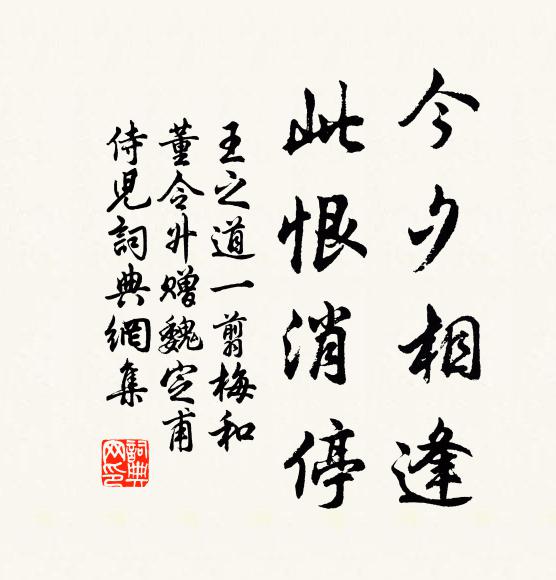 今夕相逢
此恨消停
王之道一剪梅和
董令升赠魏定甫
侍児詞典網集
詞典
网印